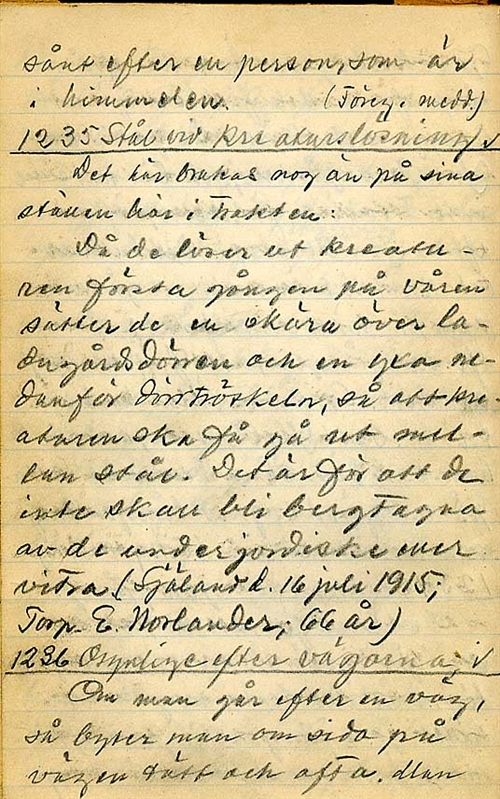 sånt efter en person, som är
i himmelen. (Föreg. medd.)
1235 Stål vid kreaturslösning.
Det här brukas nog än på sina
ställen här i trakten:
Då de löser ut kreatu-
ren första gången på våren
sätter de en skära över la-
dugårdsdörren och en yxa ne-
danför dörrtröskeln, så att kre-
aturen ska få gå ut mel-
lan stål. Det är för att de
inte skall bli bergtagna
av de underjordiske eller
vitra. (Själand d. 16 juli 1915;
Torp. E. Norlander; 66 år)
1236 Osynlige efter vägarna;
Om man går efter en väg,
så byter man om sida på
vägen tätt och ofta. Man